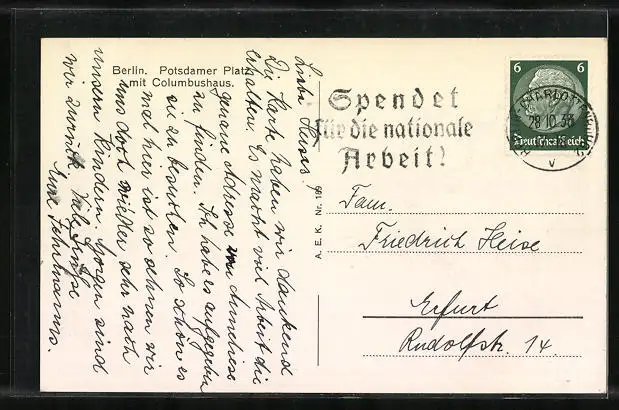 Berlin. Potsdamer Platz
mit Columbushaus.
Liebe Heises!
Die Karte haben wir dankend
erhalten. Es macht viel Arbeit die
genaue Adresse zu
zu finden. Ich habe es aufgegeben
sie zu besuchen. So schön es
mal hier ist so sehnen wir
uns doch wieder sehr nach
unsern Kindern. Morgen sind
wir zurück. Viele Grüße
Eure Fehrmanns.
Spendet
für die nationale
Arbeit!
6 6
CHARLOTTENBURG
28.10.33
V
Deutsches Reich
A. E. K. Nr. 169
Fam.
Friedrich Heise
Erfurt
Rudolfstr. 14.